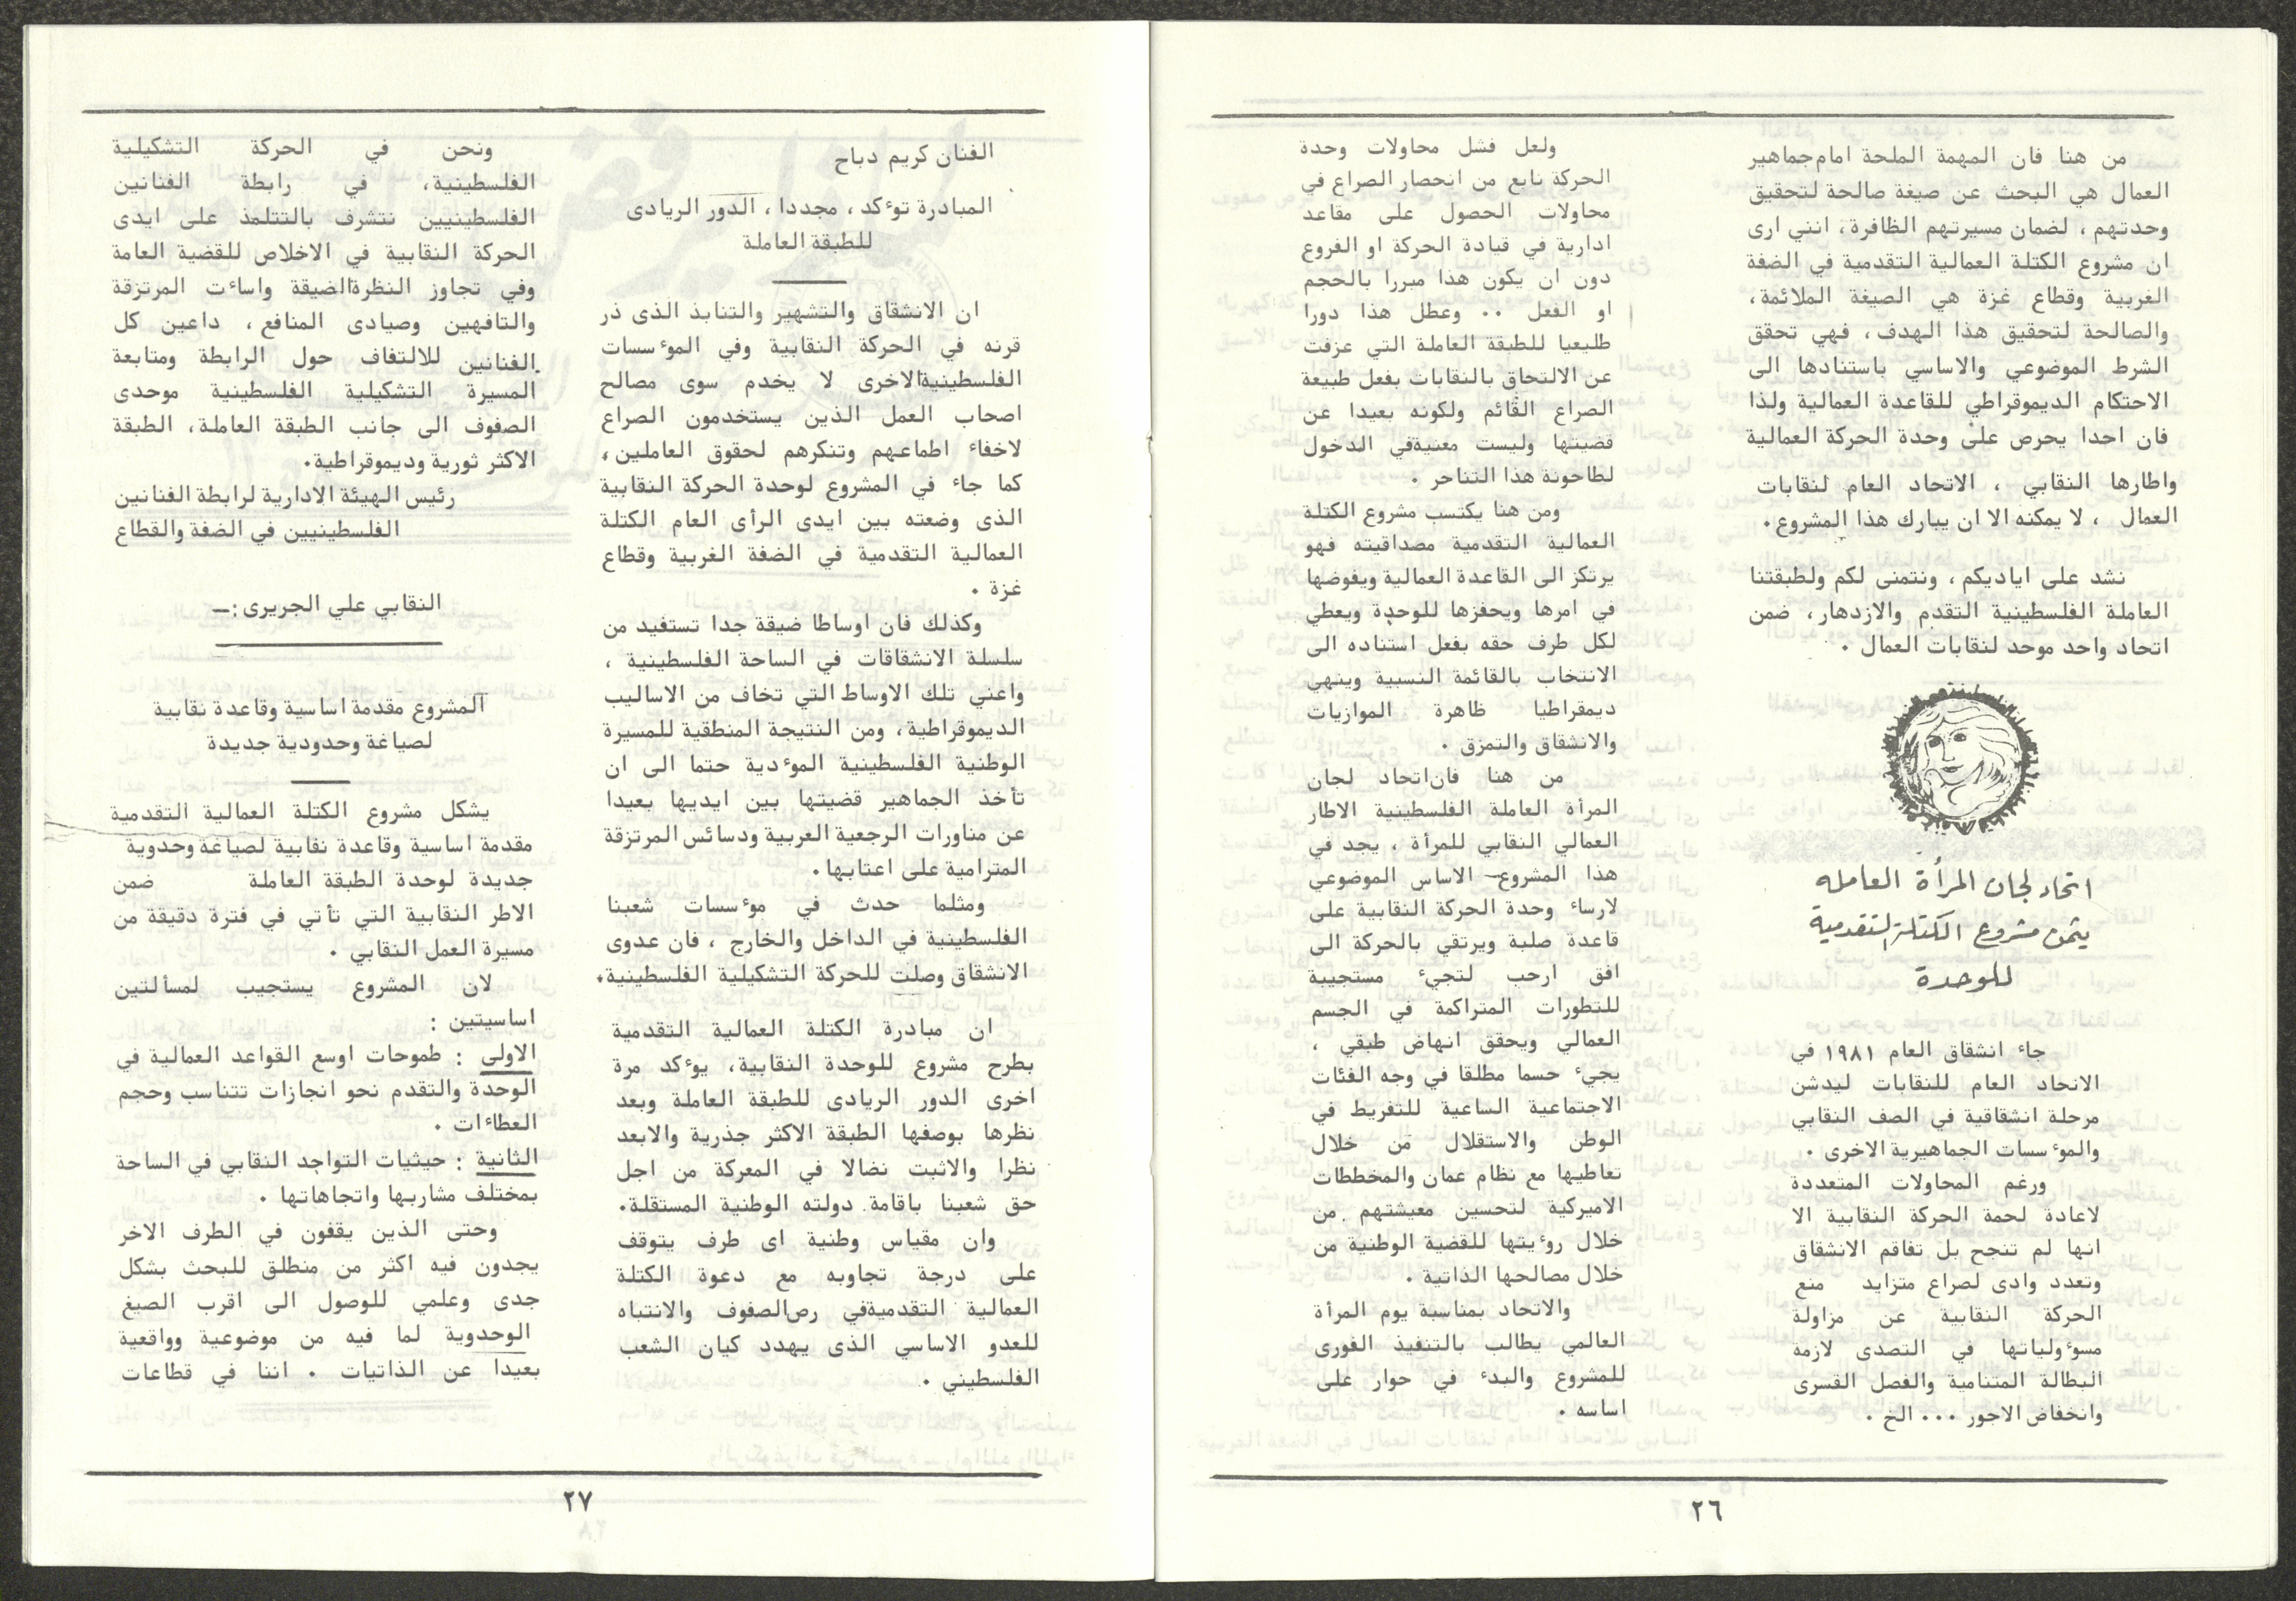 من هنا فان المهمة الملحة امام جماهير
العمال هي البحث عن صيغة صالحة لتحقيق
وحدتهم ، لضمان مسيرتهم الظافرة، انني ارى
ان مشروع الكتلة العمالية التقدمية في الضفة
الغربية وقطاع غزة هي الصيغة الملائمة،
والصالحة لتحقيق هذا الهدف، فهي تحقق
الشرط الموضوعي والاساسي باستنادها الى
الاحتكام الديموقراطي للقاعدة العمالية ولذا
فان احدا يحرص على وحدة الحركة العمالية
واطارها النقابي ، الاتحاد العام لنقابات
العمال ، لا يمكنه الا ان يبارك هذا المشروع.
نشد على اياديكم ، ونتمنى لكم ولطبقتنا
العاملة الفلسطينية التقدم والازدهار، ضمن
اتحاد واحد موحد لنقابات العمال .
اتحاد لجان المرأة العامله
يثمن مشروع الكتلة التقدمية
للوحدة
جاء انشقاق العام ١٩٨١ في
الاتحاد العام للنقابات ليدشن
مرحلة انشقاقية في الصف النقابي
والموءسسات الجماهيرية الاخرى .
ورغم المحاولات المتعددة
لاعادة لحمة الحركة النقابية الا
انها لم تنجح بل تفاقم الانشقاق
وتعدد وادى لصراع متزايد منع
الحركة النقابية عن مزاولة
مسوءولياتها في التصدى لازمة
البطالة المتنامية والفصل القسرى
وانخفاض الاجور ... الخ .
ولعل فشل محاولات وحدة
الحركة نابع من انحصار الصراع في
محاولات الحصول على مقاعد
ادارية في قيادة الحركة او الفروع
دون ان يكون هذا مبررا بالحجم
او الفعل .. وعطل هذا دورا
طليعيا للطبقة العاملة التي عزفت
عن الالتحاق بالنقابات بفعل طبيعة
الصراع القائم ولكونه بعيدا عن
قضيتها وليست معنيةفي الدخول
لطاحونة هذا التناحر .
ومن هنا يكتسب مشروع الكتلة
العمالية التقدمية مصداقيته فهو
يرتكز الى القاعدة العمالية ويفوضها
في امرها ويحفزها للوحدة ويعطي
لكل طرف حقه بفعل استناده الى
الانتخاب بالقائمة النسبية وينهي
ديمقراطيا ظاهرة الموازيات
والانشقاق والتمزق .
من هنا فان اتحاد لجان
المرأة العاملة الفلسطينية الاطار
العمالي النقابي للمرأة ، يجد في
هذا المشروع الاساس الموضوعي
لارساء وحدة الحركة النقابية على
قاعدة صلبة ويرتقي بالحركة الى
افق ارحب لتجيء مستجيبة
للتطورات المتراكمة في الجسم
العمالي ويحقق انهاض طبقي ،
يجيء حسما مطلقا في وجه الفئات
الاجتماعية الساعية للتفريط في
الوطن والاستقلال من خلال
تعاطيها مع نظام عمان والمخططات
الاميركية لتحسين معيشتهم من
خلال روءيتها للقضية الوطنية من
خلال مصالحها الذاتية .
والاتحاد بمناسبة يوم المرأة
العالمي يطالب بالتنفيذ الفورى
للمشروع والبدء في حوار على
اساسه .
٢٦
الفنان كريم دباح
المبادرة توءكد ، مجددا ، الدور الريادى
للطبقة العاملة
ان الانشقاق والتشهير والتنابذ الذى ذر
قرنه في الحركة النقابية وفي الموءسسات
الفلسطينيةالاخرى لا يخدم سوى مصالح
اصحاب العمل الذين يستخدمون الصراع
لاخفاء اطماعهم وتنكرهم لحقوق العاملين،
كما جاء في المشروع لوحدة الحركة النقابية
الذى وضعته بين ايدى الرأى العام الكتلة
العمالية التقدمية في الضفة الغربية وقطاع
غزة .
وكذلك فان اوساطا ضيقة جدا تستفيد من
سلسلة الانشقاقات في الساحة الفلسطينية ،
واعني تلك الاوساط التي تخاف من الاساليب
الديموقراطية، ومن النتيجة المنطقية للمسيرة
الوطنية الفلسطينية الموءدية حتما الى ان
تأخذ الجماهير قضيتها بين ايديها بعيدا
عن مناورات الرجعية العربية ودسائس المرتزقة
المترامية على اعتابها.
ومثلما حدث في موءسسات شعبنا
الفلسطينية في الداخل والخارج ، فان عدوى
الانشقاق وصلت للحركة التشكيلية الفلسطينية.
ان مبادرة الكتلة العمالية التقدمية
بطرح مشروع للوحدة النقابية، يوءكد مرة
اخرى الدور الريادى للطبقة العاملة وبعد
نظرها بوصفها الطبقة الاكثر جذرية والابعد
نظرا والاثبت نضالا في المعركة من اجل
حق شعبنا باقامة دولته الوطنية المستقلة.
وان مقياس وطنية اى طرف يتوقف
على درجة تجاوبه مع دعوة الكتلة
العمالية التقدميةفي رص الصفوف والانتباه
للعدو الاساسي الذى يهدد كيان الشعب
الفلسطيني .
ونحن في الحركة التشكيلية
الفلسطينية، في رابطة الفنانين
الفلسطينيين نتشرف بالتتلمذ على ايدى
الحركة النقابية في الاخلاص للقضية العامة
وفي تجاوز النظرةالضيقة واساءت المرتزقة
والتافهين وصيادى المنافع، داعين كل
الفنانين للالتفاف حول الرابطة ومتابعة
المسيرة التشكيلية الفلسطينية موحدى
الصفوف الى جانب الطبقة العاملة، الطبقة
الاكثر ثورية وديموقراطية.
رئيس الهيئة الادارية لرابطة الفنانين
الفلسطينيين في الضفة والقطاع
النقابي علي الجريرى:ـ
المشروع مقدمة اساسية وقاعدة نقابية
لصياغة وحدودية جديدة
يشكل مشروع الكتلة العمالية التقدمية
مقدمة اساسية وقاعدة نقابية لصياغة وحدوية
جديدة لوحدة الطبقة العاملة ضمن
الاطر النقابية التي تأتي في فترة دقيقة من
مسيرة العمل النقابي .
لان المشروع يستجيب لمسألتين
اساسيتين :
الاولى : طموحات اوسع القواعد العمالية في
الوحدة والتقدم نحو انجازات تتناسب وحجم
العطاءات .
الثانية : حيثيات التواجد النقابي في الساحة
بمختلف مشاربها واتجاهاتها .
وحتى الذين يقفون في الطرف الاخر
يجدون فيه اكثر من منطلق للبحث بشكل
جدى وعلمي للوصول الى اقرب الصيغ
الوحدوية لما فيه من موضوعية وواقعية
بعيدا عن الذاتيات . اننا في قطاعات
٢٧